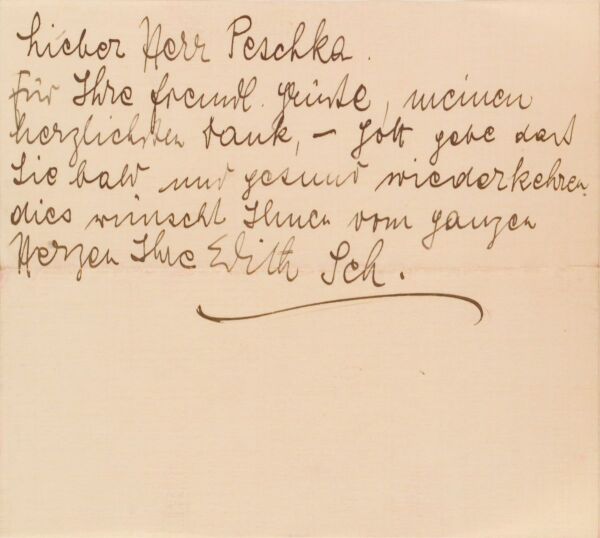 Lieber Herr Peschka.
Für Ihre freundl. Grüße, meinen
herzlichsten Dank, – Gott gebe dass
Sie bald und gesund wiederkehren.
dies wünscht Ihnen vom ganzen
Herzen Ihre Edith Sch.